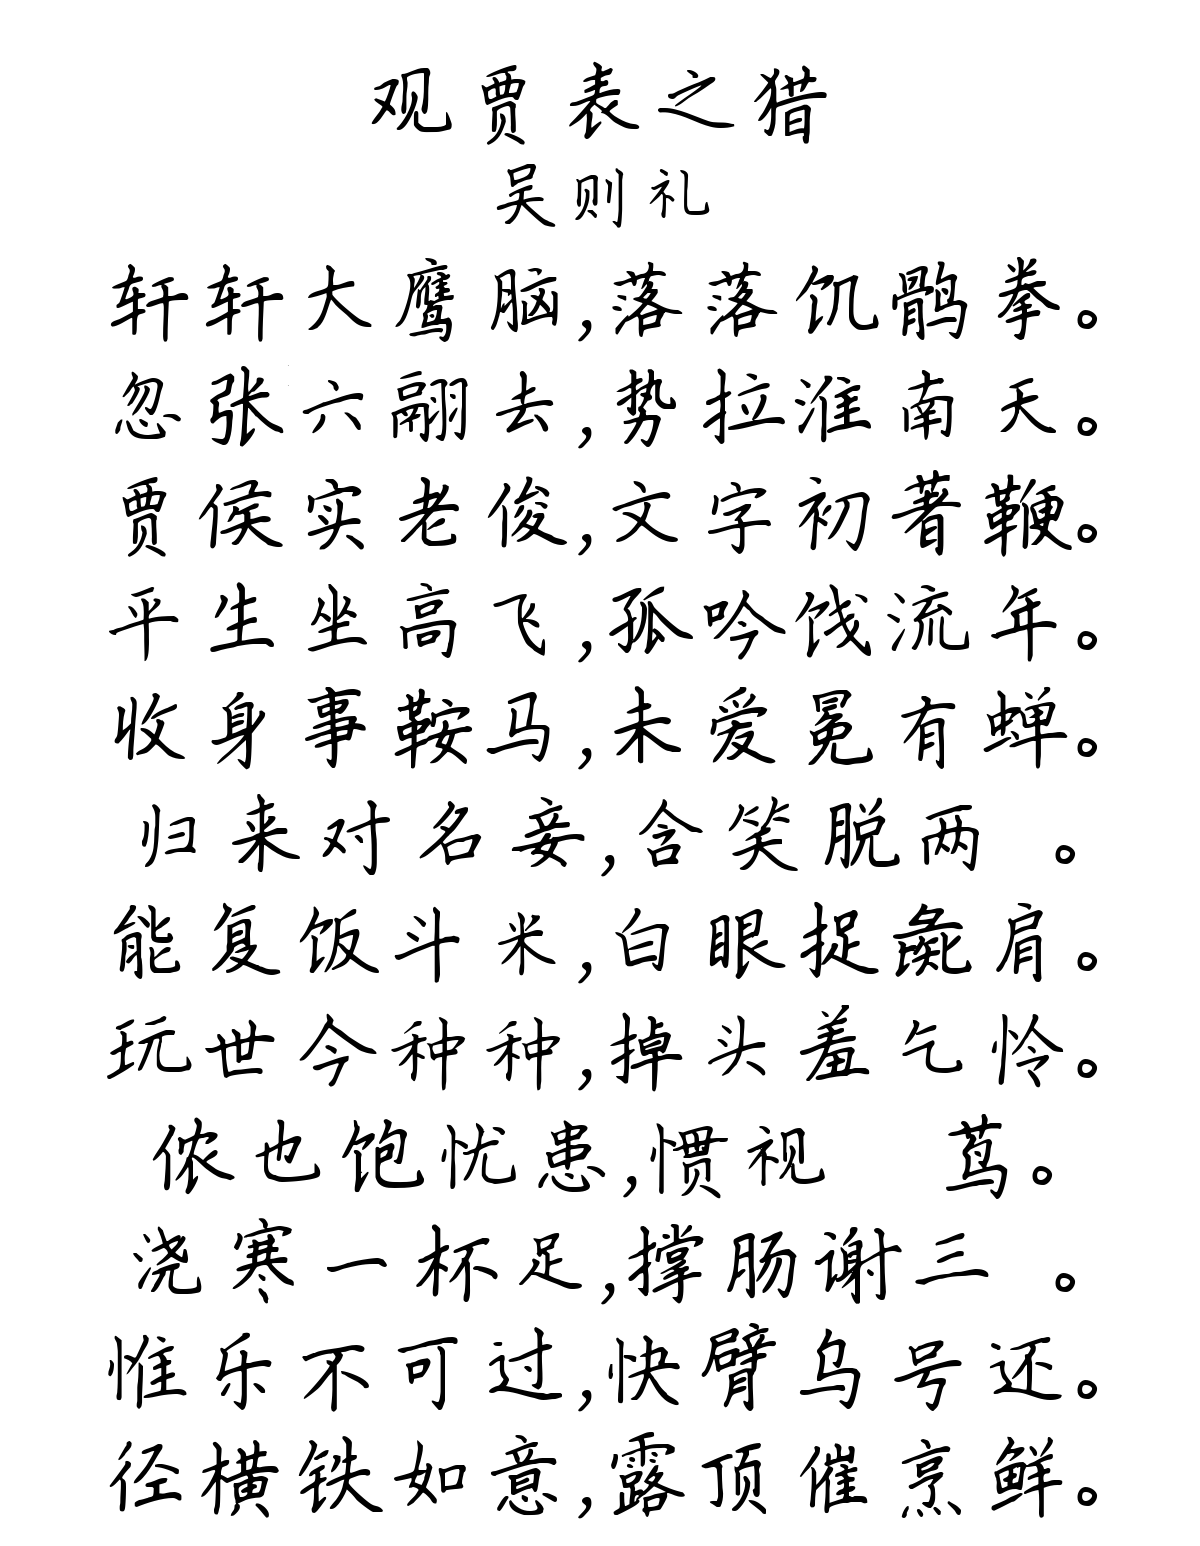 观贾表之猎
吴则礼
轩轩大鹰脑,落落饥鹘拳。
忽张六翮去,势拉淮南天。
贾侯实老俊,文字初著鞭。
平生坐高飞,孤吟饯流年。
收身事鞍马,未爱冕有蝉。
归来对名妾,含笑脱两 。
能复饭斗米,白眼捉彘肩。
玩世今种种,掉头羞乞怜。
侬也饱忧患,惯视 茑。
浇寒一杯足,撑肠谢三 。
惟乐不可过,快臂乌号还。
径横铁如意,露顶催烹鲜。